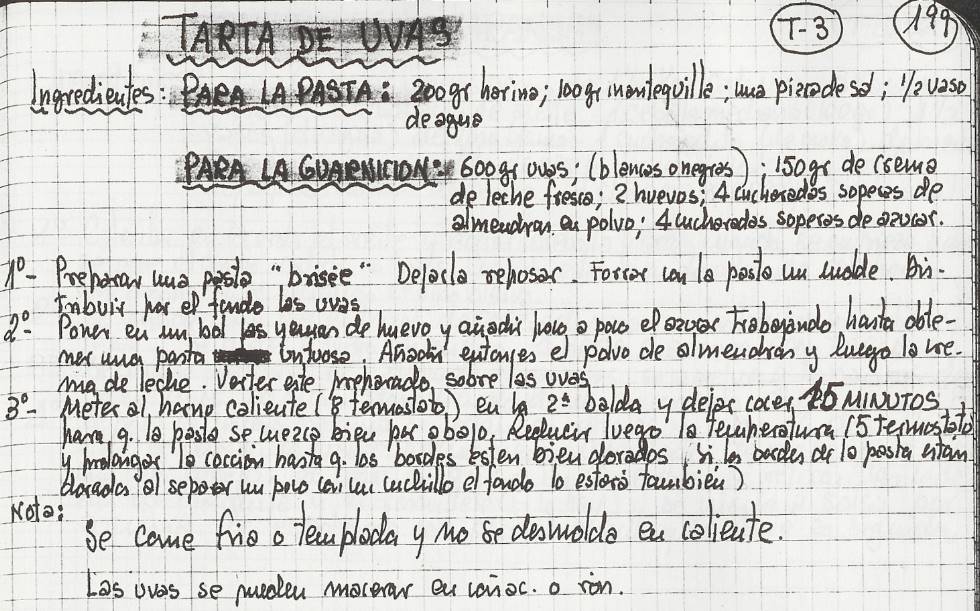 TARTA DE UVAS T-3 199
Ingredientes: PARA LA PASTA: 200gr harina; 100gr mantequilla; una pizca de sal; 1/2 vaso
de agua
PARA LA GUARNICION: 600gr uvas; (blancas o negras); 150gr de crema
de leche fresca; 2 huevos; 4 cucharadas soperas de
almendras en polvo; 4 cucharadas soperas de azucar.
1º- Preparar una pasta "brisée" Dejarla reposar. Forrar con la pasta un molde. Dis-
tribuir por el fondo las uvas
2º- Poner en un bol las yemas de huevo y añadir poco a poco el azucar trabajando hasta obte-
ner una pasta untuosa. Añadir entonces el polvo de almendras y luego la cre-
ma de leche. Verter este preparado, sobre las uvas
3º- Meter al horno caliente (8 termostato) en la 2ª balda y dejar cocer, 15 MINUTOS
para q. la pasta se cuezca bien por abajo, Reducir luego la temperatura (5 termostato
y prolongar la cocción hasta q. los bordes esten bien dorados, si los bordes de la pasta estan
dorados al separar un poco con un cuchillo el fondo lo estará también)
Nota:
Se come fria o templada y no se desmolda en caliente.
Las uvas se pueden macerar en coñac. o ron.